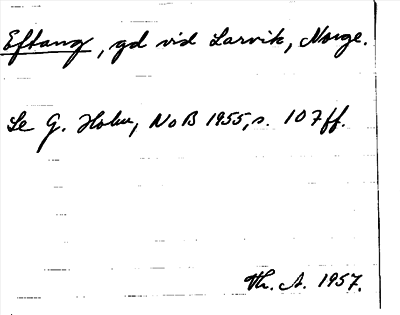 Eftang, gd vid Larvik, Norge.
Se G. Holm, NoB 1955, s. 107ff.
Th. A. 1957.